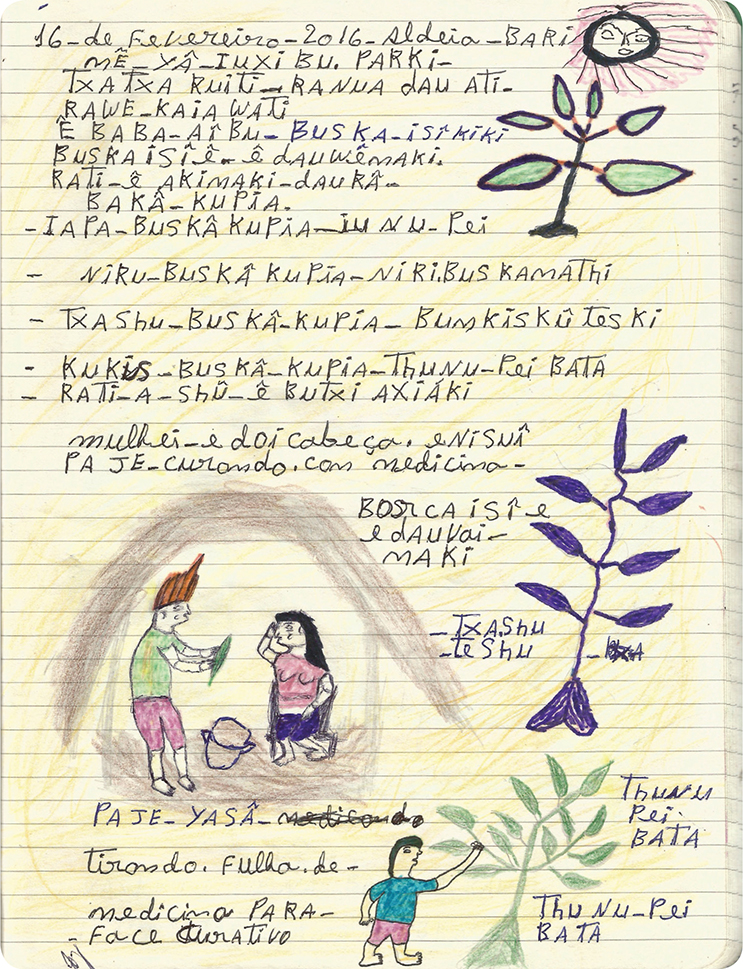 16-de FeveREIRO-2016-Aldeia-BARI
MẼ-YÂ-IUXI BU. PARKI-
TXATXA RUITI-RANUA dAU ATI-
RAWE-KAIA WATI
Ê BABA-AÎ BU-BUSKA-ISÎ KIKI
BUSKA ISÎ-Ê-ê dAUWÊMAKI.
RATI-Ê AKIMAKI-dAURÂ-
BAKÂ-KUPIA.
-IAPA-BUSKÂ KUPIA-IU NU-Pei
- NIRU-BUSKÂ KUPIA-NIRI.BUSKAMATHI
- TXASHU-BUSKÂ-KUPIA-BUMKISKÛ TESKI
- KUKIS-BUSKÂ-KUPIA-THUNU-Pei BATA
- RATI-A-SHÛ-Ê BUTXI AXIÁKI
mulhei-e doi cabeça. e NISUÎ
PAJE-curondo.con medicina-
BOSCA ISÎ-e
e dauvai-
MAKI
-TXAShu
-Te Shu
PAJE-YASÂ-
Tirondo. Fulha.de-
medicina PARA-
-FACE CURATIVO
ThuNu
Pei.
BATA
Thu Nu-Pei
BATA